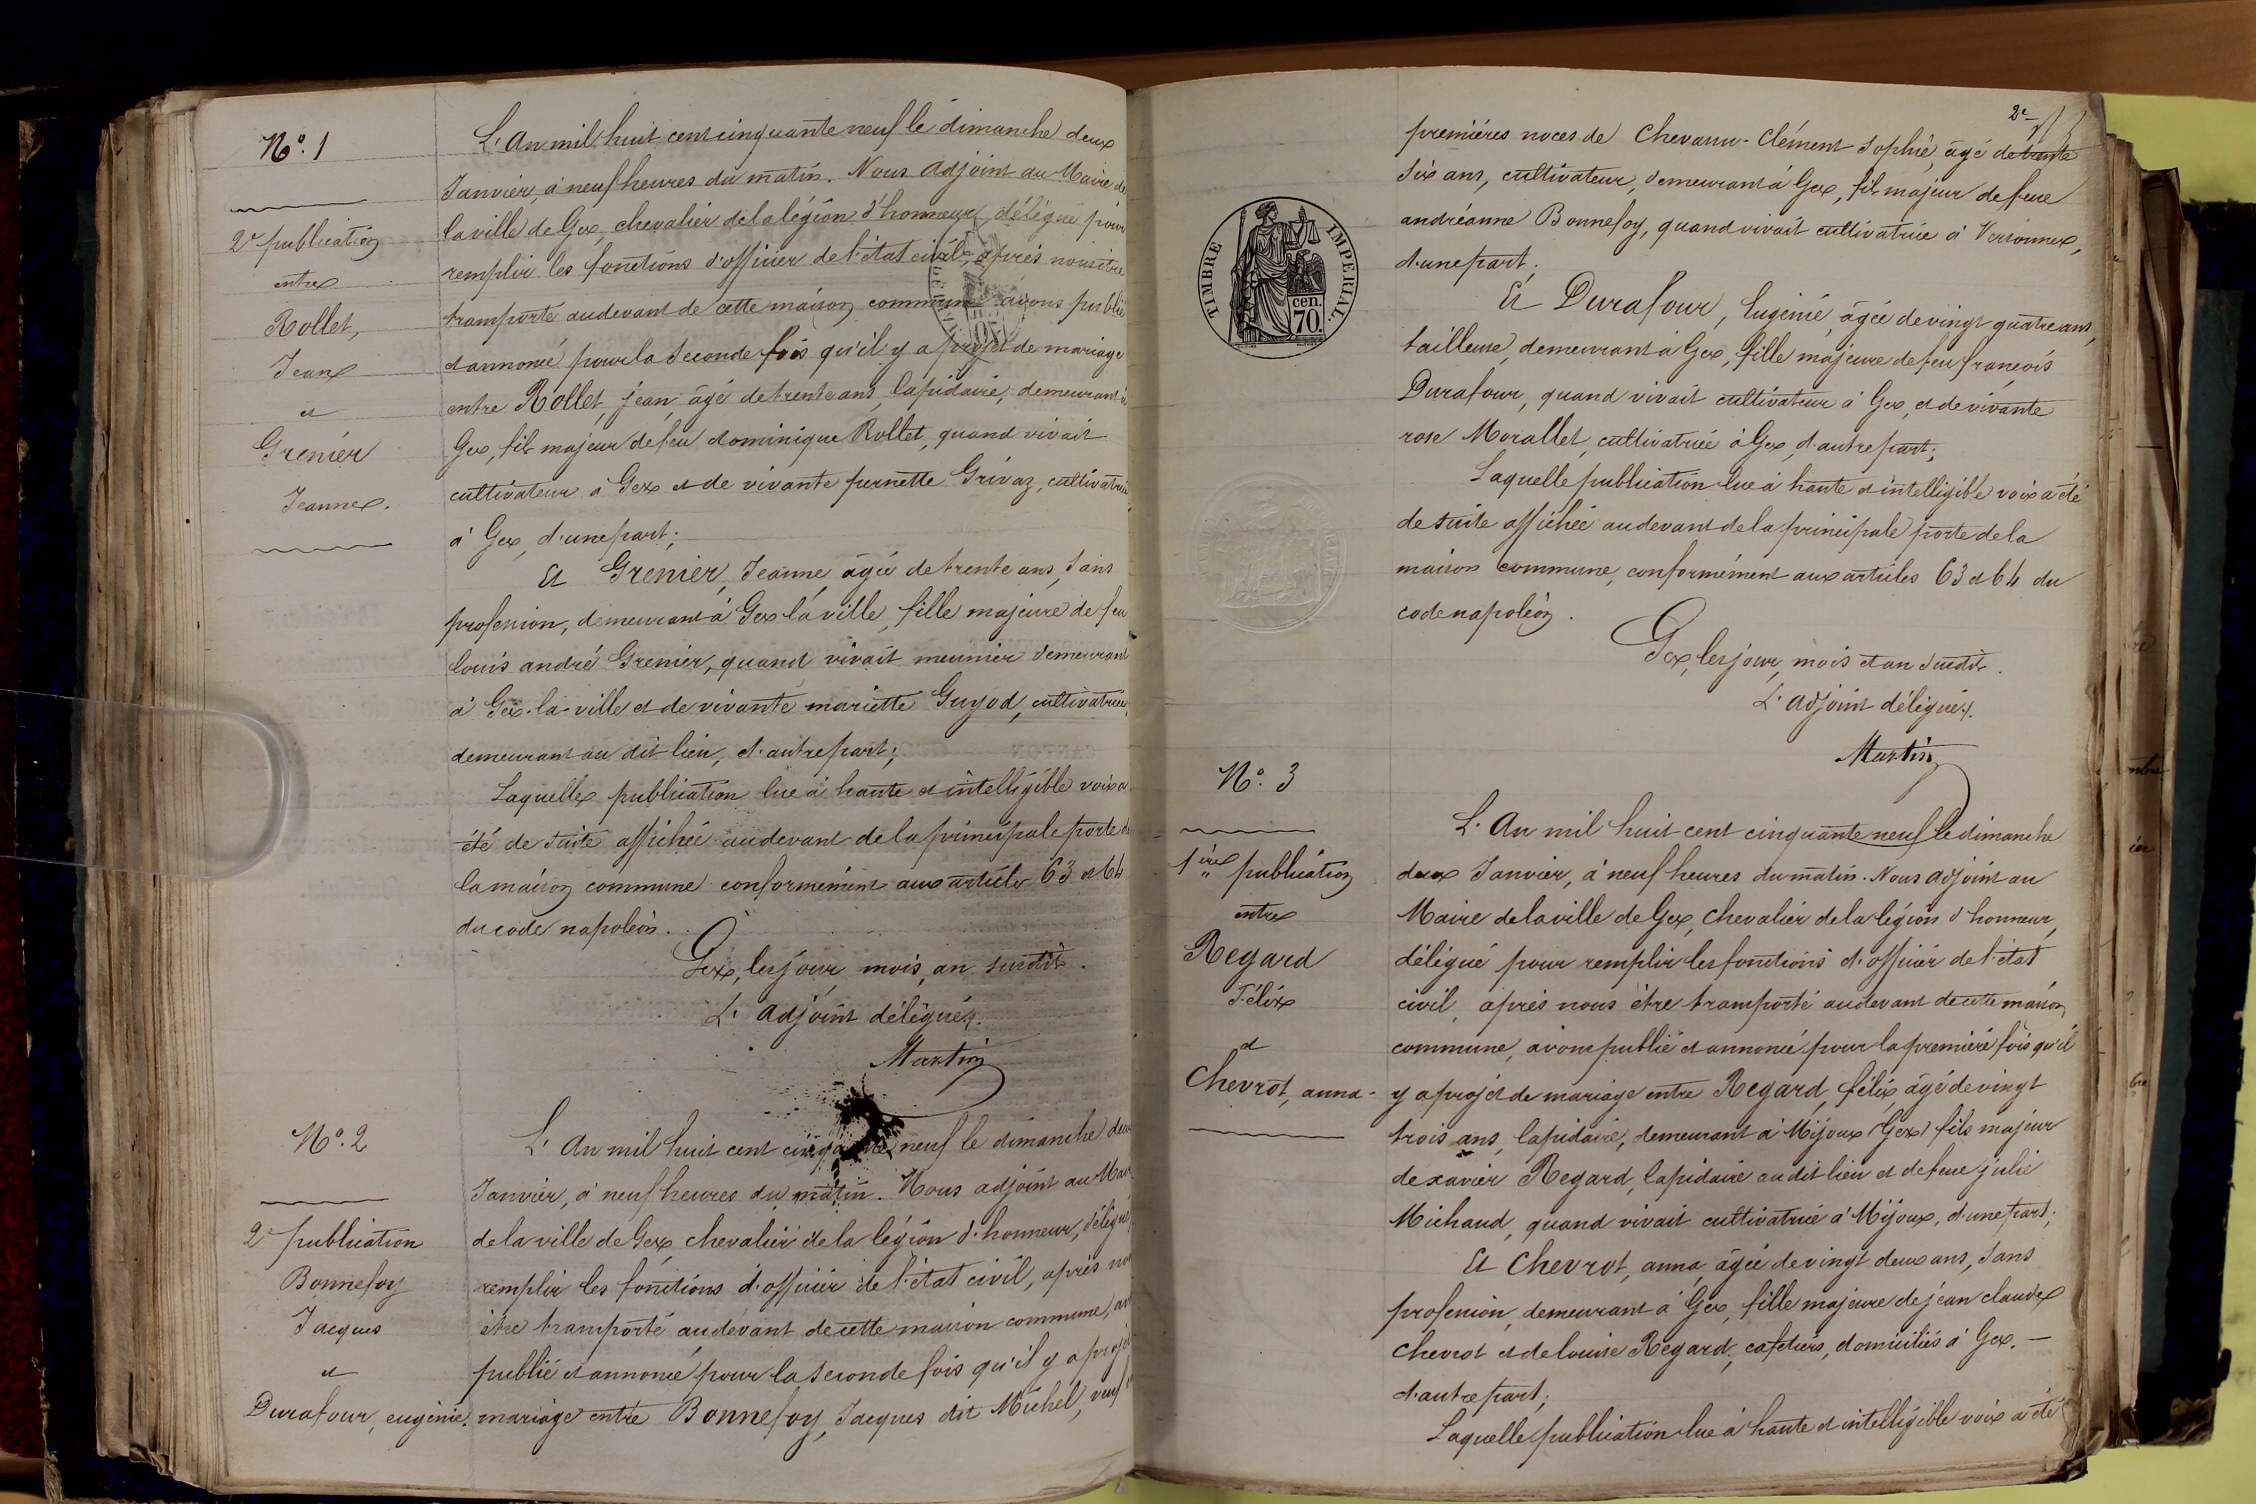 N°. 1
2e publication
entre
Rollet,
Jean
et
Grenier
Jeanne.
L'An mil huit cent cinquante neuf le dimanche deux
Janvier, à neuf heures du matin. Nous adjoint au Maire de
la ville de Gex, chevalier de la légion d'honneur, délégué pour
remplir les fonctions d'officier de l'état civil, après nous être
transporté audevant de cette maison commune avons publié
et annoncé pour la seconde fois qu'il y a projet de mariage
entre Rollet, jean, âgé de trente ans, lapidaire, demeurant à
Gex, fils majeur de feu dominique Rollet, quand vivait
cultivateur à Gex et de vivante pernette Grivaz, cultivatrice
à Gex, d'une part;
Et Grenier, Jeanne, âgée de trente ans, sans
profession, demeurant à Gex-la ville, fille majeure de feu
louis andré Grenier, quand vivait meunier demeurant
à Gex-la-ville et de vivante mariette Guyod, cultivatrice,
demeurant au dit lieu, d'autre part;
Laquelle publication lue à haute et intelligible voix a
été de suite affichée audevant de la principale porte de
la maison commune conformément aux articles 63 et 64
du code napoléon.
Gex, les jour, mois, an susdits.
L'adjoint délégué.
Martin
N°. 2
2e publication
Bonnefoy
Jacques
et
Durafour, eugénie.
L'An mil huit cent cinquante neuf le dimanche deux
Janvier, à neuf heures du matin. Nous adjoint au Maire
de la ville de Gex chevalier de la légion d'honneur, délégué
remplir les fonctions d'officier de l'état civil, après nous
être transporté audevant de cette maison commune, avons
publié et annoncé pour la seconde fois qu'il y a projet
mariage entre Bonnefoy, Jacques dit Michel, veuf
2e
premières noces de Chevann-Clément Sophie, âgé de trente
six ans, cultivateur, demeurant à Gex, fils majeur de feue
andréanne Bonnefoy, quand vivait cultivatrice à Versonnex,
d'une part;
Et Durafour, Eugénie, âgée de vingt quatre ans,
tailleuse, demeurant à Gex, fille majeure de feu françois
Durafour, quand vivait cultivateur à Gex, et de vivante
rose Morallet, cultivatrice à Gex, d'autre part;
Laquelle publication lue à haute et intelligible voix a été
de suite affichée audevant de la principale porte de la
maison commune, conformément aux articles 63 et 64 du
code napoléon.
Gex, les jour, mois et an susdits.
L'adjoint délégué.
Martin
TIMBRE IMPERIAL.
cen.
70.
N°. 3
1ère publication
entre
Regard
Félix
et
Chevrot, anna-
L'An mil huit cent cinquante neuf le dimanche
deux Janvier, à neuf heures du matin. Nous adjoint au
Maire de la ville de Gex, Chevalier de la légion d'honneur,
délégué pour remplir les fonctions d'officier de l'état
civil, après nous être transporté audevant de cette maison
commune, avons publié et annoncé pour la première fois qu'il
y a projet de mariage entre Regard, félix, âgé de vingt
trois ans, lapidaire, demeurant à Mijoux (Gex) fils majeur
de xavier Regard, lapidaire au dit lieu et de feue julie
Michaud, quand vivait cultivatrice à Mijoux, d'une part;
Et Chevrot, anna, âgée de vingt deux ans, sans
profession, demeurant à Gex, fille majeure de jean claude
Chevrot et de louise Regard, cafetiers, domiciliés à Gex. —
d'autre part;
Laquelle publication lue à haute et intelligible voix a été